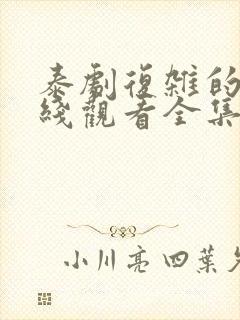 泰劇復雜的
綫觀看全集
小川亮四葉